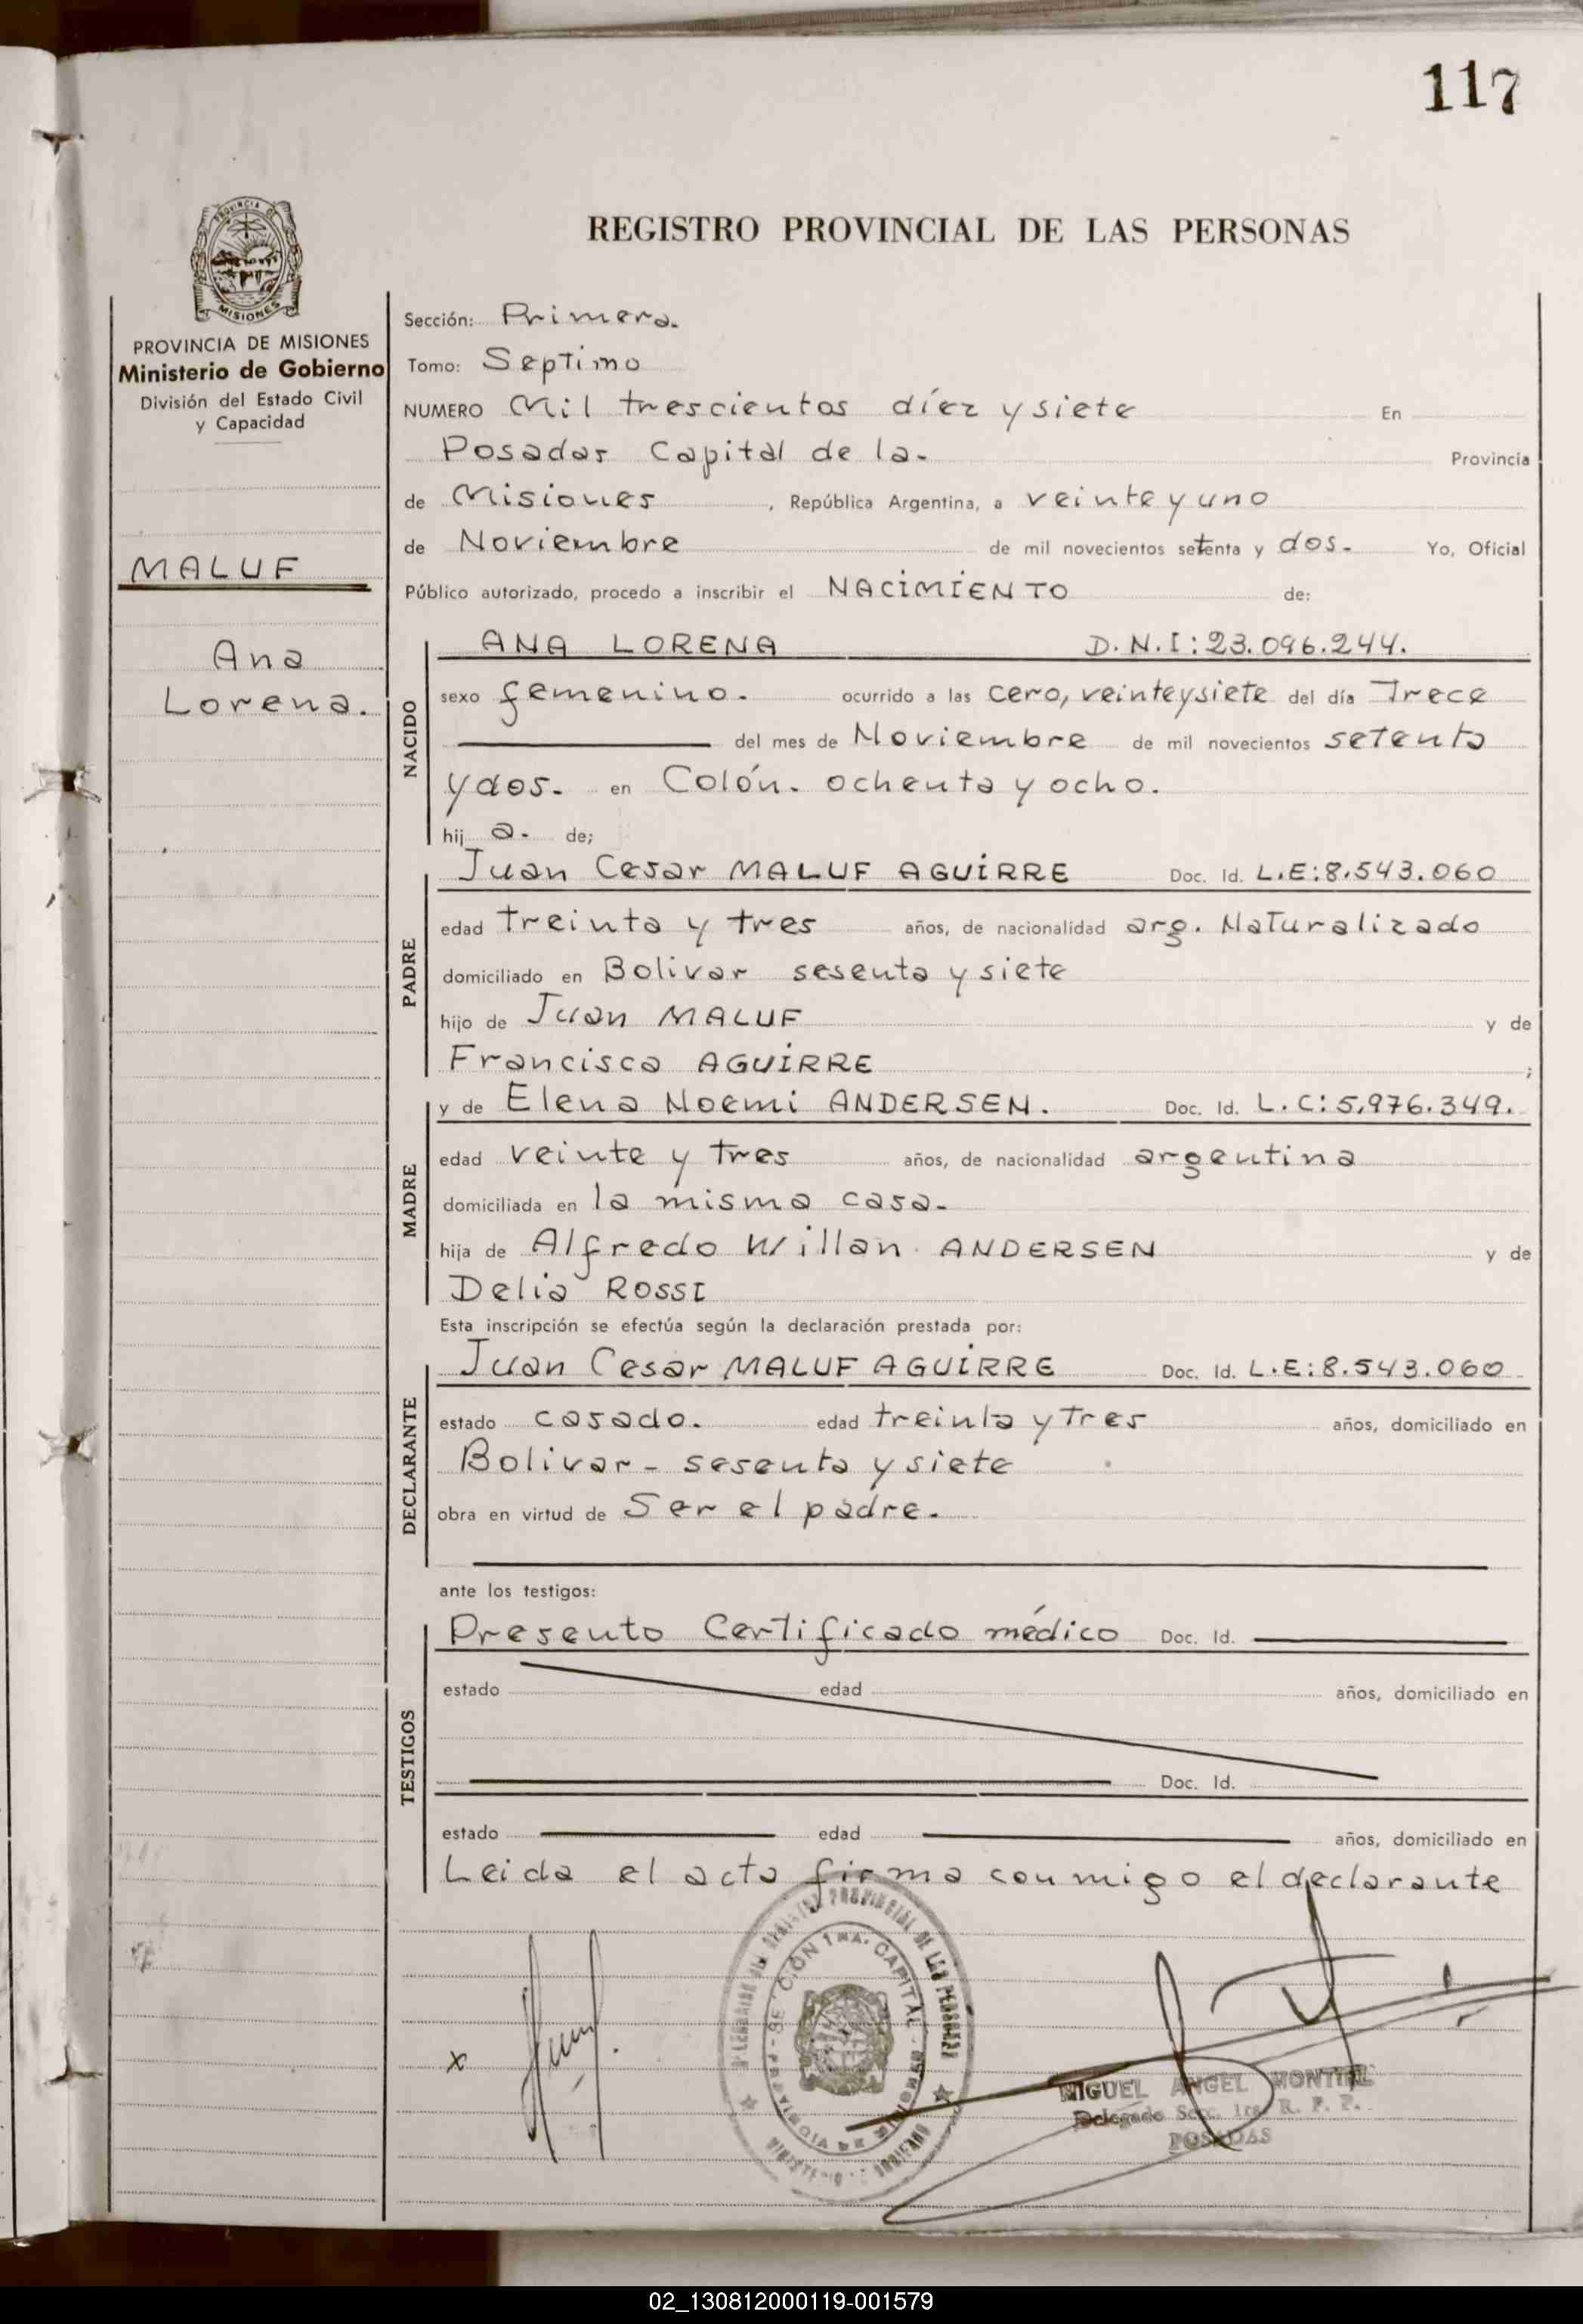 117
REGISTRO PROVINCIAL DE LAS PERSONAS
PROVINCIA DE MISIONES
Ministerio de Gobierno
División del Estado Civil
y Capacidad
MALUF
Ana
Lorena.
Sección: Primera.
Tomo: Septimo
NUMERO Mil trescientos díez y siete En
Posadas Capital de la. Provincia
de Misiones, República Argentina, a veinte y uno
de Noviembre de mil novecientos setenta y dos. Yo, Oficial
Público autorizado, procedo a inscribir el NACIMIENTO de:
NACIDO
ANA LORENA D.N.I: 23.096.244.
sexo femenino. ocurrido a las cero, veinteysiete del día Trece
del mes de Noviembre de mil novecientos setenta
y dos. en Colón. ochenta y ocho.
hij a. de;
PADRE
Juan Cesar MALUF AGUIRRE Doc. Id. L.E: 8.543.060
edad treinta y tres años, de nacionalidad arg. Naturalizado
domiciliado en Bolivar sesenta y siete
hijo de Juan MALUF y de
Francisca AGUIRRE ;
MADRE
y de Elena Noemi ANDERSEN. Doc. Id. L.C: 5,976.349.
edad veinte y tres años, de nacionalidad argentina
domiciliada en la misma casa.
hija de Alfredo Willan ANDERSEN y de
Delia ROSSI
Esta inscripción se efectúa según la declaración prestada por:
DECLARANTE
Juan Cesar MALUF AGUIRRE Doc. Id. L.E: 8.543.060
estado casado. edad treinta y Tres años, domiciliado en
Bolivar - sesenta y siete
obra en virtud de Ser el padre.
ante los testigos:
TESTIGOS
Presento Certificado médico Doc. Id.
estado edad años, domiciliado en
Doc. Id.
estado edad años, domiciliado en
Leida el acta firma conmigo el declarante
x
MIGUEL ANGEL MONTIEL
Delegado Secc. 1ra. R. P. P.
POSADAS
02_130812000119-001579